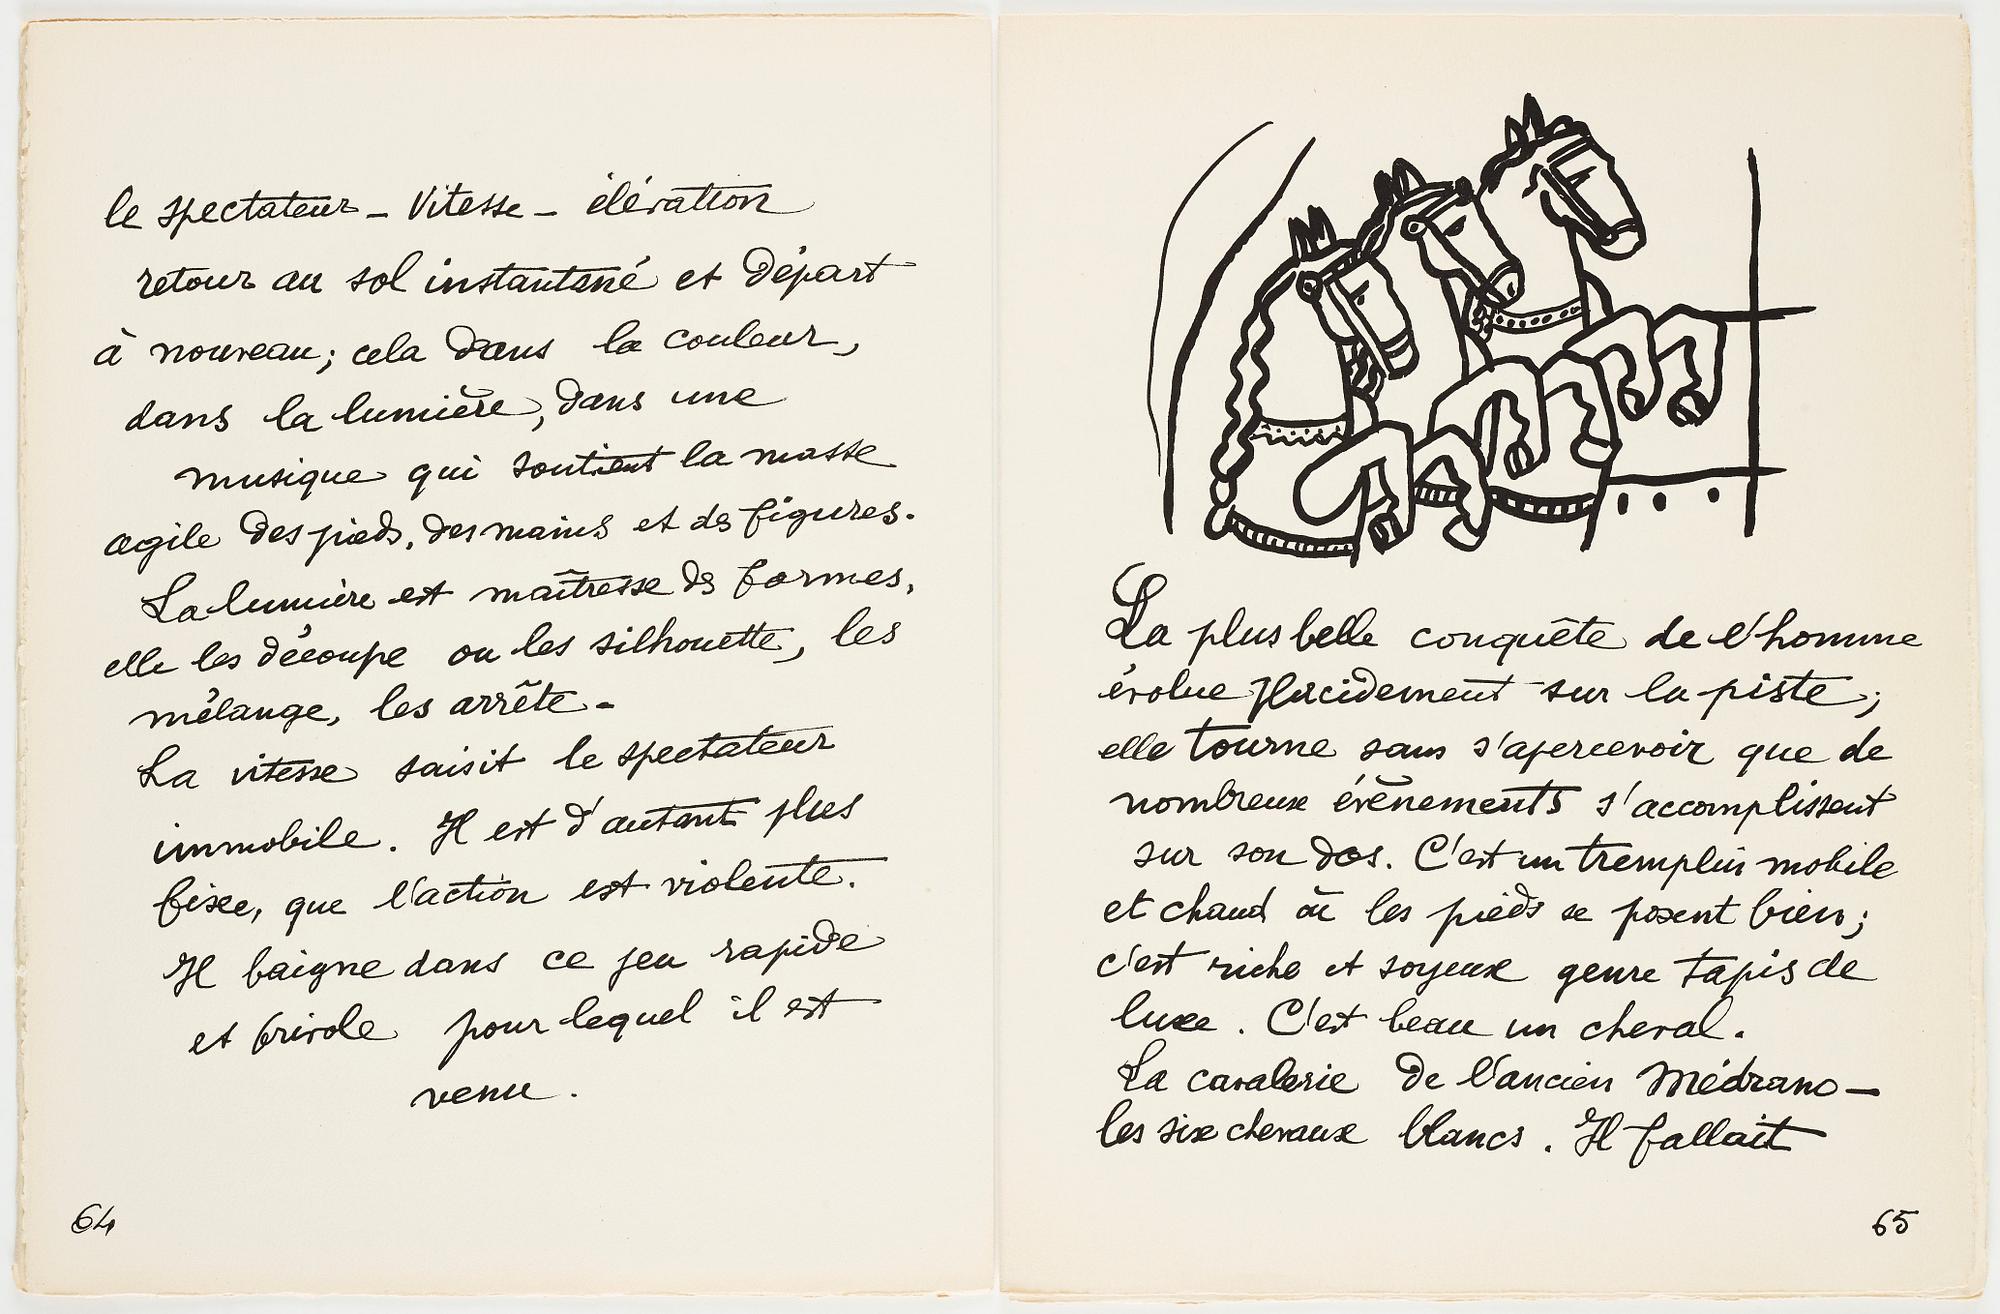 le spectateur – Vitesse – élévation
retour au sol instantané et départ
à nouveau; cela dans la couleur,
dans la lumière, dans une
musique qui soutient la masse
agile des pieds, des mains et ds figures.
La lumière est maîtresse ds formes,
elle les découpe ou les silhouette, les
mélange, les arrête –
La vitesse saisit le spectateur
immobile. Il est d'autant plus
fixe, que l'action est violente.
Il baigne dans ce jeu rapide
et frivole pour lequel il est
venu.
64
La plus belle conquête de l'homme
évolue placidement sur la piste;
elle tourne sans s'apercevoir que de
nombreux évènements s'accomplissent
sur son dos. C'est un tremplin mobile
et chaud où les pieds se posent bien;
c'est riche et soyeux genre tapis de
luxe. C'est beau un cheval.
La cavalerie de l'ancien Médrano –
les six chevaux blancs. Il fallait
65